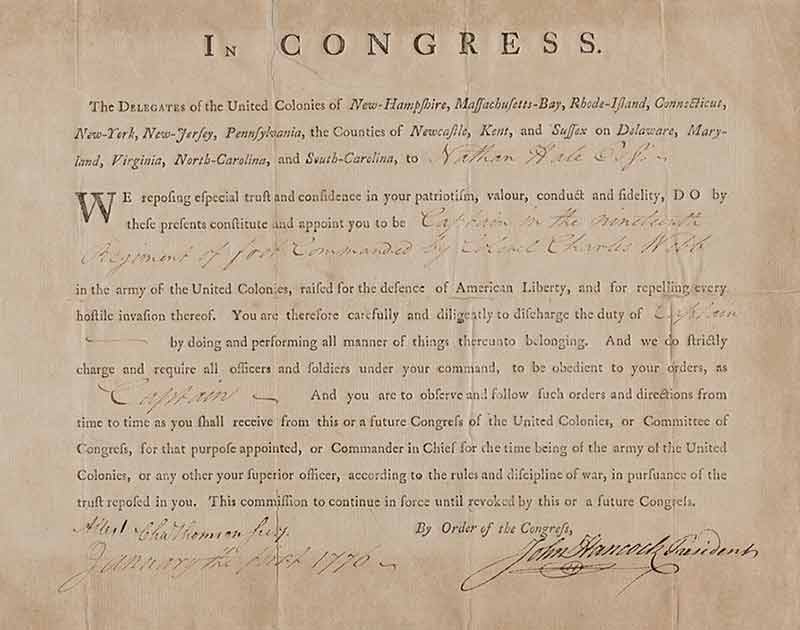 In CONGRESS.
The DELEGATES of the United Colonies of New-Hampſhire, Maſſachuſetts-Bay, Rhode-Iſland, Connecticut,
New-York, New-Jerſey, Pennſylvania, the Counties of Newcaſtle, Kent, and Suſſex on Delaware, Mary-
land, Virginia, North-Carolina, and South-Carolina, to Nathan Hale Esqr.
WE repoſing eſpecial truſt and confidence in your patriotiſm, valour, conduct and fidelity, DO by
theſe preſents conſtitute and appoint you to be Captain in the nineteenth
Regiment of foot Commanded by Colonel Charles Webb
in the army of the United Colonies, raiſed for the defence of American Liberty, and for repelling every
hoſtile invaſion thereof. You are therefore carefully and diligently to diſcharge the duty of Captain
by doing and performing all manner of things thereunto belonging. And we do ſtrictly
charge and require all officers and ſoldiers under your command, to be obedient to your orders, as
Captain And you are to obſerve and follow ſuch orders and directions from
time to time as you ſhall receive from this or a future Congreſs of the United Colonies, or Committee of
Congreſs, for that purpoſe appointed, or Commander in Chief for the time being of the army of the United
Colonies, or any other your ſuperior officer, according to the rules and diſcipline of war, in purſuance of the
truſt repoſed in you. This commiſſion to continue in force until revoked by this or a future Congreſs.
Attest Cha Thomson secy. By Order of the Congreſs,
January the first 1776 John Hancock President